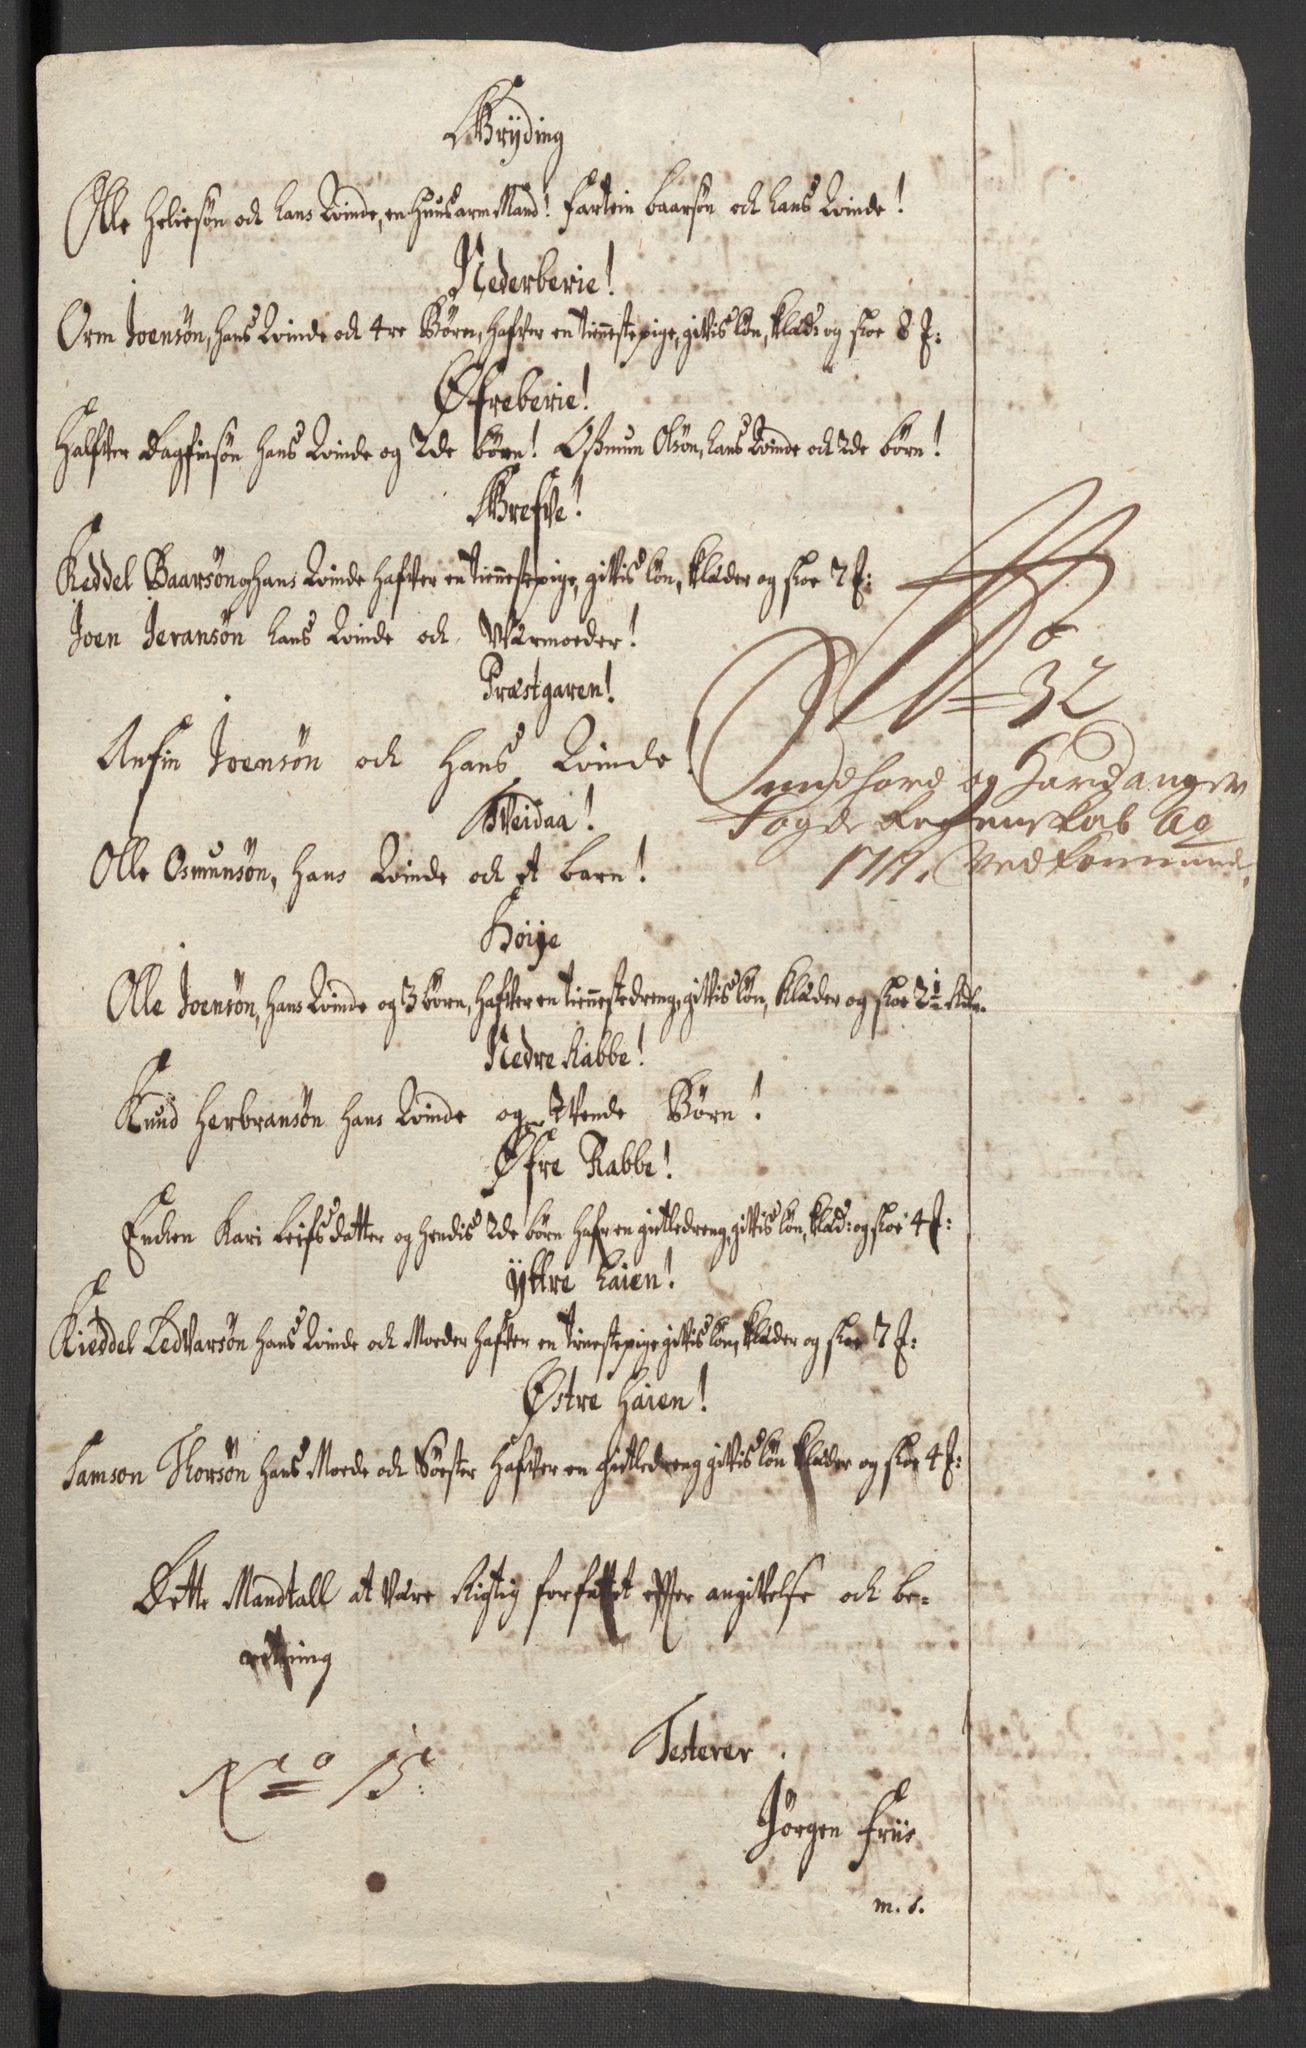 Gryding
Olle Heliesön och hans Qvinde, en Huusarm Mand! Fartein Baarsön och hans Qvinde!
Nederberie!
Orm Joensön, hans Qvinde och 4re Börn, hafver en tienestepige, gifvis lön, klæd: og skoe 8 f:
Øfreberie!
Halfver Dagfinsön hans Qvinde og 2de börn! Oßmun Olsön, hans Qvinde och 2de börn!
Grefve!
Keddel Baarsön og hans Qvinde hafver en tienestepige, gifvis lön, klæder og skoe 7 f:
Joen Jeransön hans Qvinde och Værmoeder!
Præstgaren!
Anfin Joensön och Hans Qvinde!
Tveidaa!
Olle Osmunsön, hans Qvinde och et barn!
Höije
Olle Joensön, hans Qvinde og 3 börn, hafver en tienestedreng, gifvis lön, klæder og skoe 2½
Nedre Rabbe!
Knud Herbransön hans Qvinde og tvende Börn!
Øfre Rabbe!
Enchen Kari Leifsdatter og hendis 2de börn hafr en gietledreng, gifvis lön, klæd: og skoe 4 f:
Yttre Haien!
Kieddel Ledvarsön hans Qvinde och Moeder hafver en tienestepige gifvis lön, klæder og skoe 7 f:
Østre Haien!
Samson Thorsön hans Moede och Söster hafver en gietledreng gifvis lön klæder og skoe 4 f:
Dette Mandtall at være Rigtig forfattet efter angivelse och be-
retning
Testerer
No 15:
Jörgen Friis
m. s.
6
32
Sundhord og Hardanger
Fogde Regenskab Ao
1711. Vedkommende.